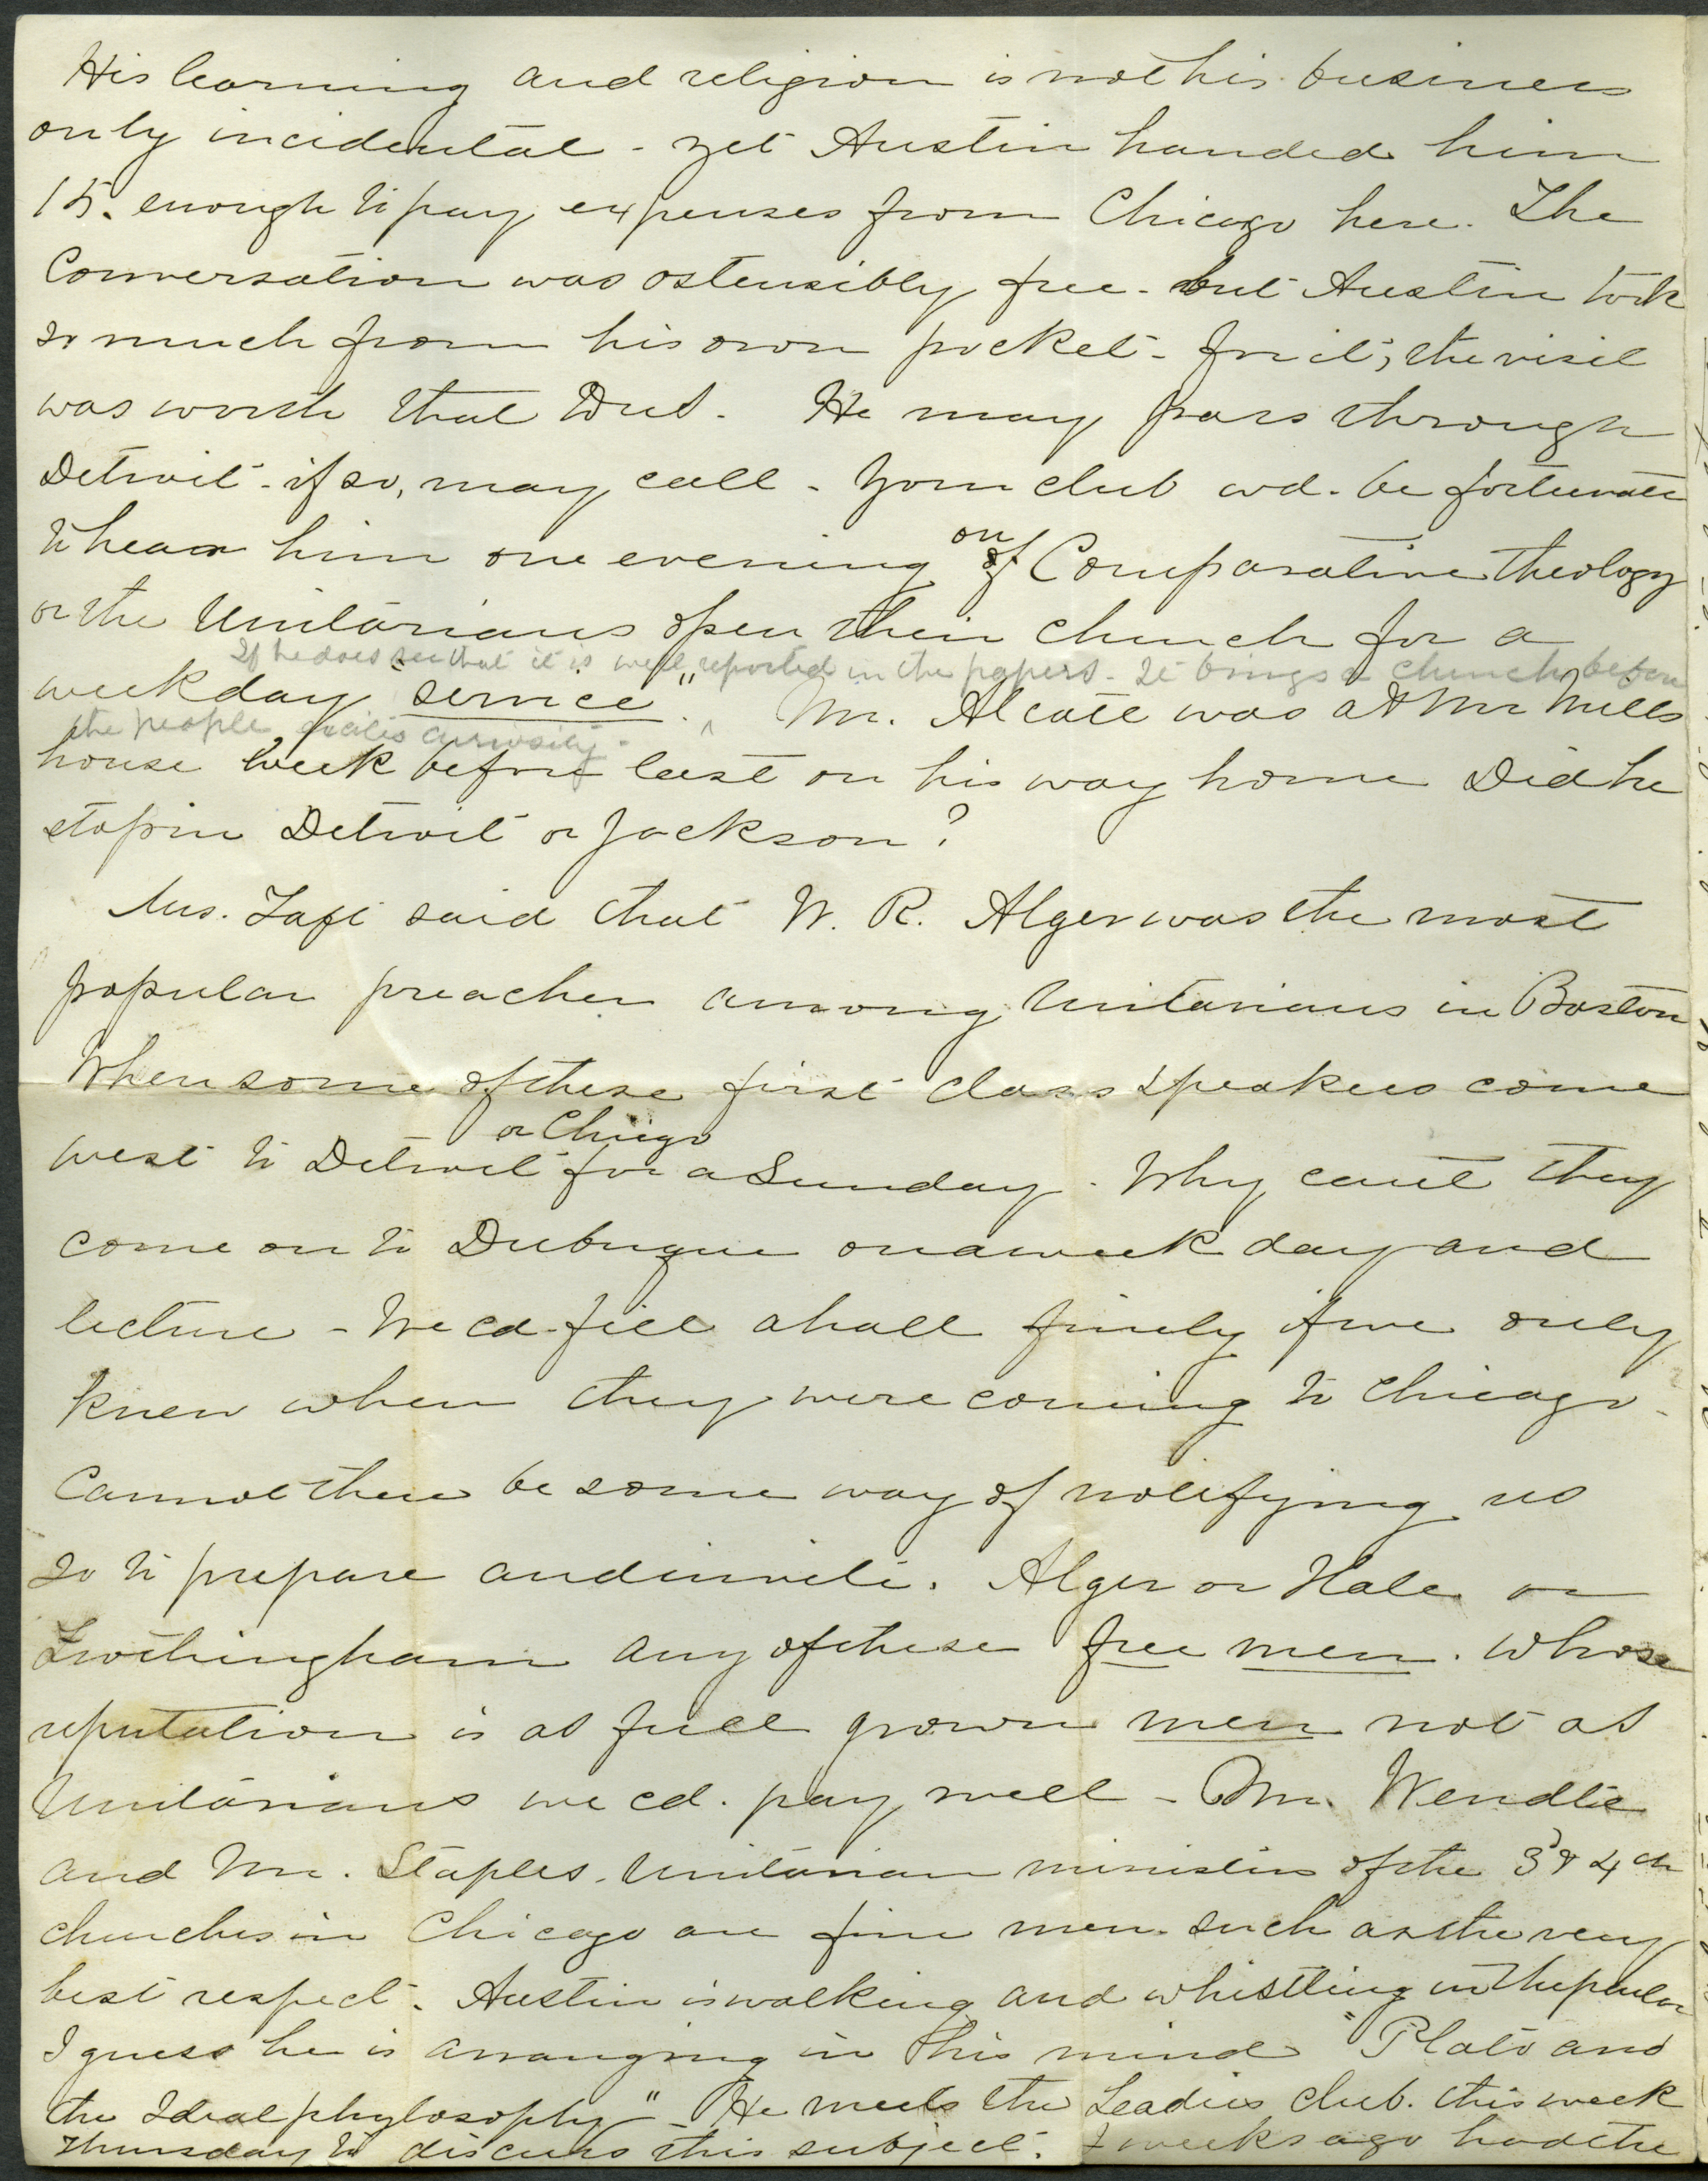 His learning and religion is not his business
only incidental - yet Austin handed him
15. enough to pay expenses from Chicago here. The
Conversation was ostensibly free - but Austin took
so much from his own pocket - for it, the visit
was worth that to us. He may pass through
Detroit - if so, may call - Your club wd. be fortunate
to hear him one evening on of Comparative theology
or the Unitarians open their church for a
If he does see that it is well reported in the papers - It brings a church before
weekday "service". ^ Mr. Alcott was at Mr Mills
the people excites curiosity -
house week before last on his way home Did he
stop in Detroit or Jackson?
Mrs. Taft said that W. R. Alger was the most
popular preacher among Unitarians in Boston
When some of these first class speakers come
or Chicgo
west to Detroit for a Sunday. Why cant they
come on to Dubuque on a week day and
lecture - We cd. fill a hall finely if we only
knew when they were coming to Chicago -
Cannot there be some way of notifying us
so to prepare and invite. Alger or Hale or
Frothingham any of these free men. whose
reputation is as full grown men not as
Unitarians we cd. pay well - Mr. Wendtie
and Mr. Staples, Unitarian ministers of the 3d & 4th
churches in Chicago are fine men such as the very
best respect. Austin is walking and whistling in the parlor
I guess he is arranging in his mind "Plato and
the Ideal phylosophy" - He meets the Leadies club. this week
Thursday to discuss this subject. 2 weeks ago had the